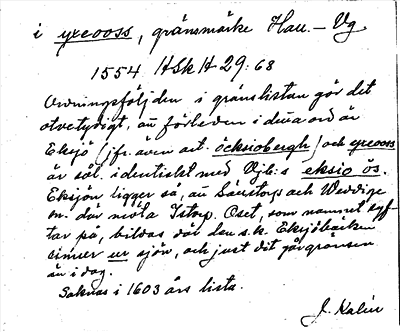 i yxeooss, gränsmärke Hall. – Vg
1554 HSk H 29:68
Ordningsföljden i gränslistan gör det
otvetydigt, att förleden i dessa ord är
Eksjö (jfr. även art. öcksiobergh) och yxeooss
är sål. identiskt med Vjb:s eksio ös.
Eksjön ligger så, att Sävstorp och Weddige
m. där nedla Istorp. Oset, som namnet syf-
tar på, bildas där den s.k. Eksjöbäcken
rinner ur sjön, och just dit går gränsen
än i dag.
Saknas i 1603 års lista.
J. Kalén